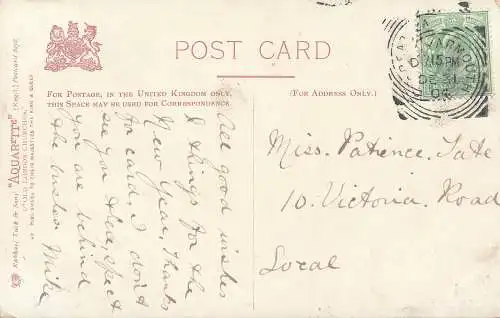 POST CARD
FOR POSTAGE, IN THE UNITED KINGDOM ONLY,
THIS SPACE MAY BE USED FOR CORRESPONDENCE.
(FOR ADDRESS ONLY.)
GREAT YARMOUTH
7.15 PM
DE 31
04
Raphael Tuck & Sons' "AQUARETTE" Postcard
OLD LONDON CHURCHES
All good wishes
& things for the
New Year. Thanks
for card, I don't
see you &
you are behind
the Mike
Miss. Patience. Tate
10. Victoria. Road
Local